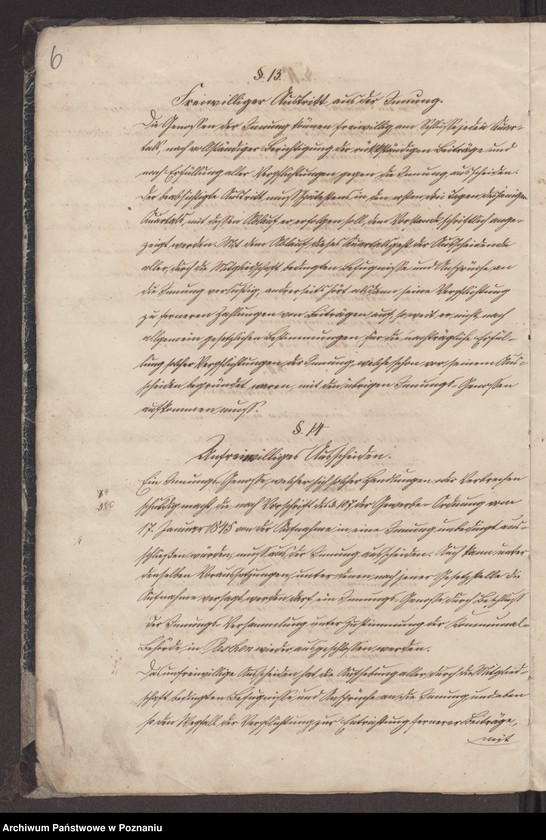 6
§. 13.
Freiwilliger Austritt aus der Innung.
Die Genossen der Innung können freiwillig am Schlusse jeden Quar-
tals, nach vollständiger Berichtigung der rückständigen Beiträge und
nach Erfüllung aller Verpflichtungen gegen die Innung ausscheiden.
Der beabsichtigte Austritt muß spätestens in den ersten drei Tagen desjenigen
Quartals, mit dessen Ablauf er erfolgen soll, dem Vorstande schriftlich ange-
zeigt werden. Mit dem Ablauf dieses Quartals geht der Ausscheidende
aller, durch die Mitgliedschaft bedingten Befugnisse und Ansprüche an
die Innung verlustig, anderseits hört alsdann seine Verpflichtung
zu ferneren Zahlungen von Beiträgen auf, soweit er nicht nach
allgemein gesetzlichen Bestimmungen für die nachträgliche Erfül-
lung solcher Verpflichtungen der Innung, welche schon vor seinem Aus-
scheiden begründet waren, mit den übrigen Innungs-Genossen
aufkommen muß.
§. 14
Unfreiwilliges Ausscheiden.
Ein Innungs-Genosse, welcher sich solcher Handlungen oder Verbrechen
schuldig macht, die nach Vorschrift des § 107 der Gewerbe-Ordnung vom
17 Januar 1845 von der Aufnahme in eine Innung unbedingt aus-
schließen würden, muß aus der Innung ausscheiden. Auch kann, unter
denselben Voraussetzungen, unter denen nach jener Gesetzstelle die
Aufnahme versagt werden darf, ein Innungs-Genosse durch Beschluß
der Innungs-Versammlung unter Zustimmung der Kommunal-
Behörde, in wieder ausgeschlossen werden.
Das unfreiwillige Ausscheiden hat die Aufhebung aller, durch die Mitglied-
schaft bedingten Befugnisse und Ansprüche an die Innung, und eben
so den Wegfall der Verpflichtung zur Entrichtung fernerer Beiträge,
mit
Archiwum Państwowe w Poznaniu